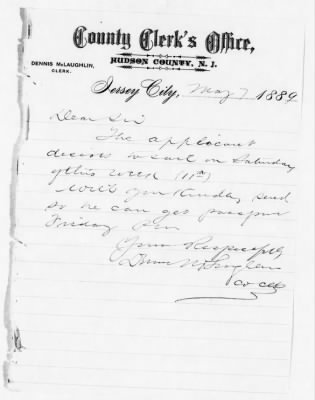 County Clerk's Office,
HUDSON COUNTY, N. J.
DENNIS McLAUGHLIN,
CLERK.
Jersey City, May 7 1889
Dear Sir
The applicant
desires to sail on Saturday
of this week (11th)
Will you Kindly send
so he can get passport
Friday PM
Yours Respectfully
Dennis McLaughlin
Co Clk